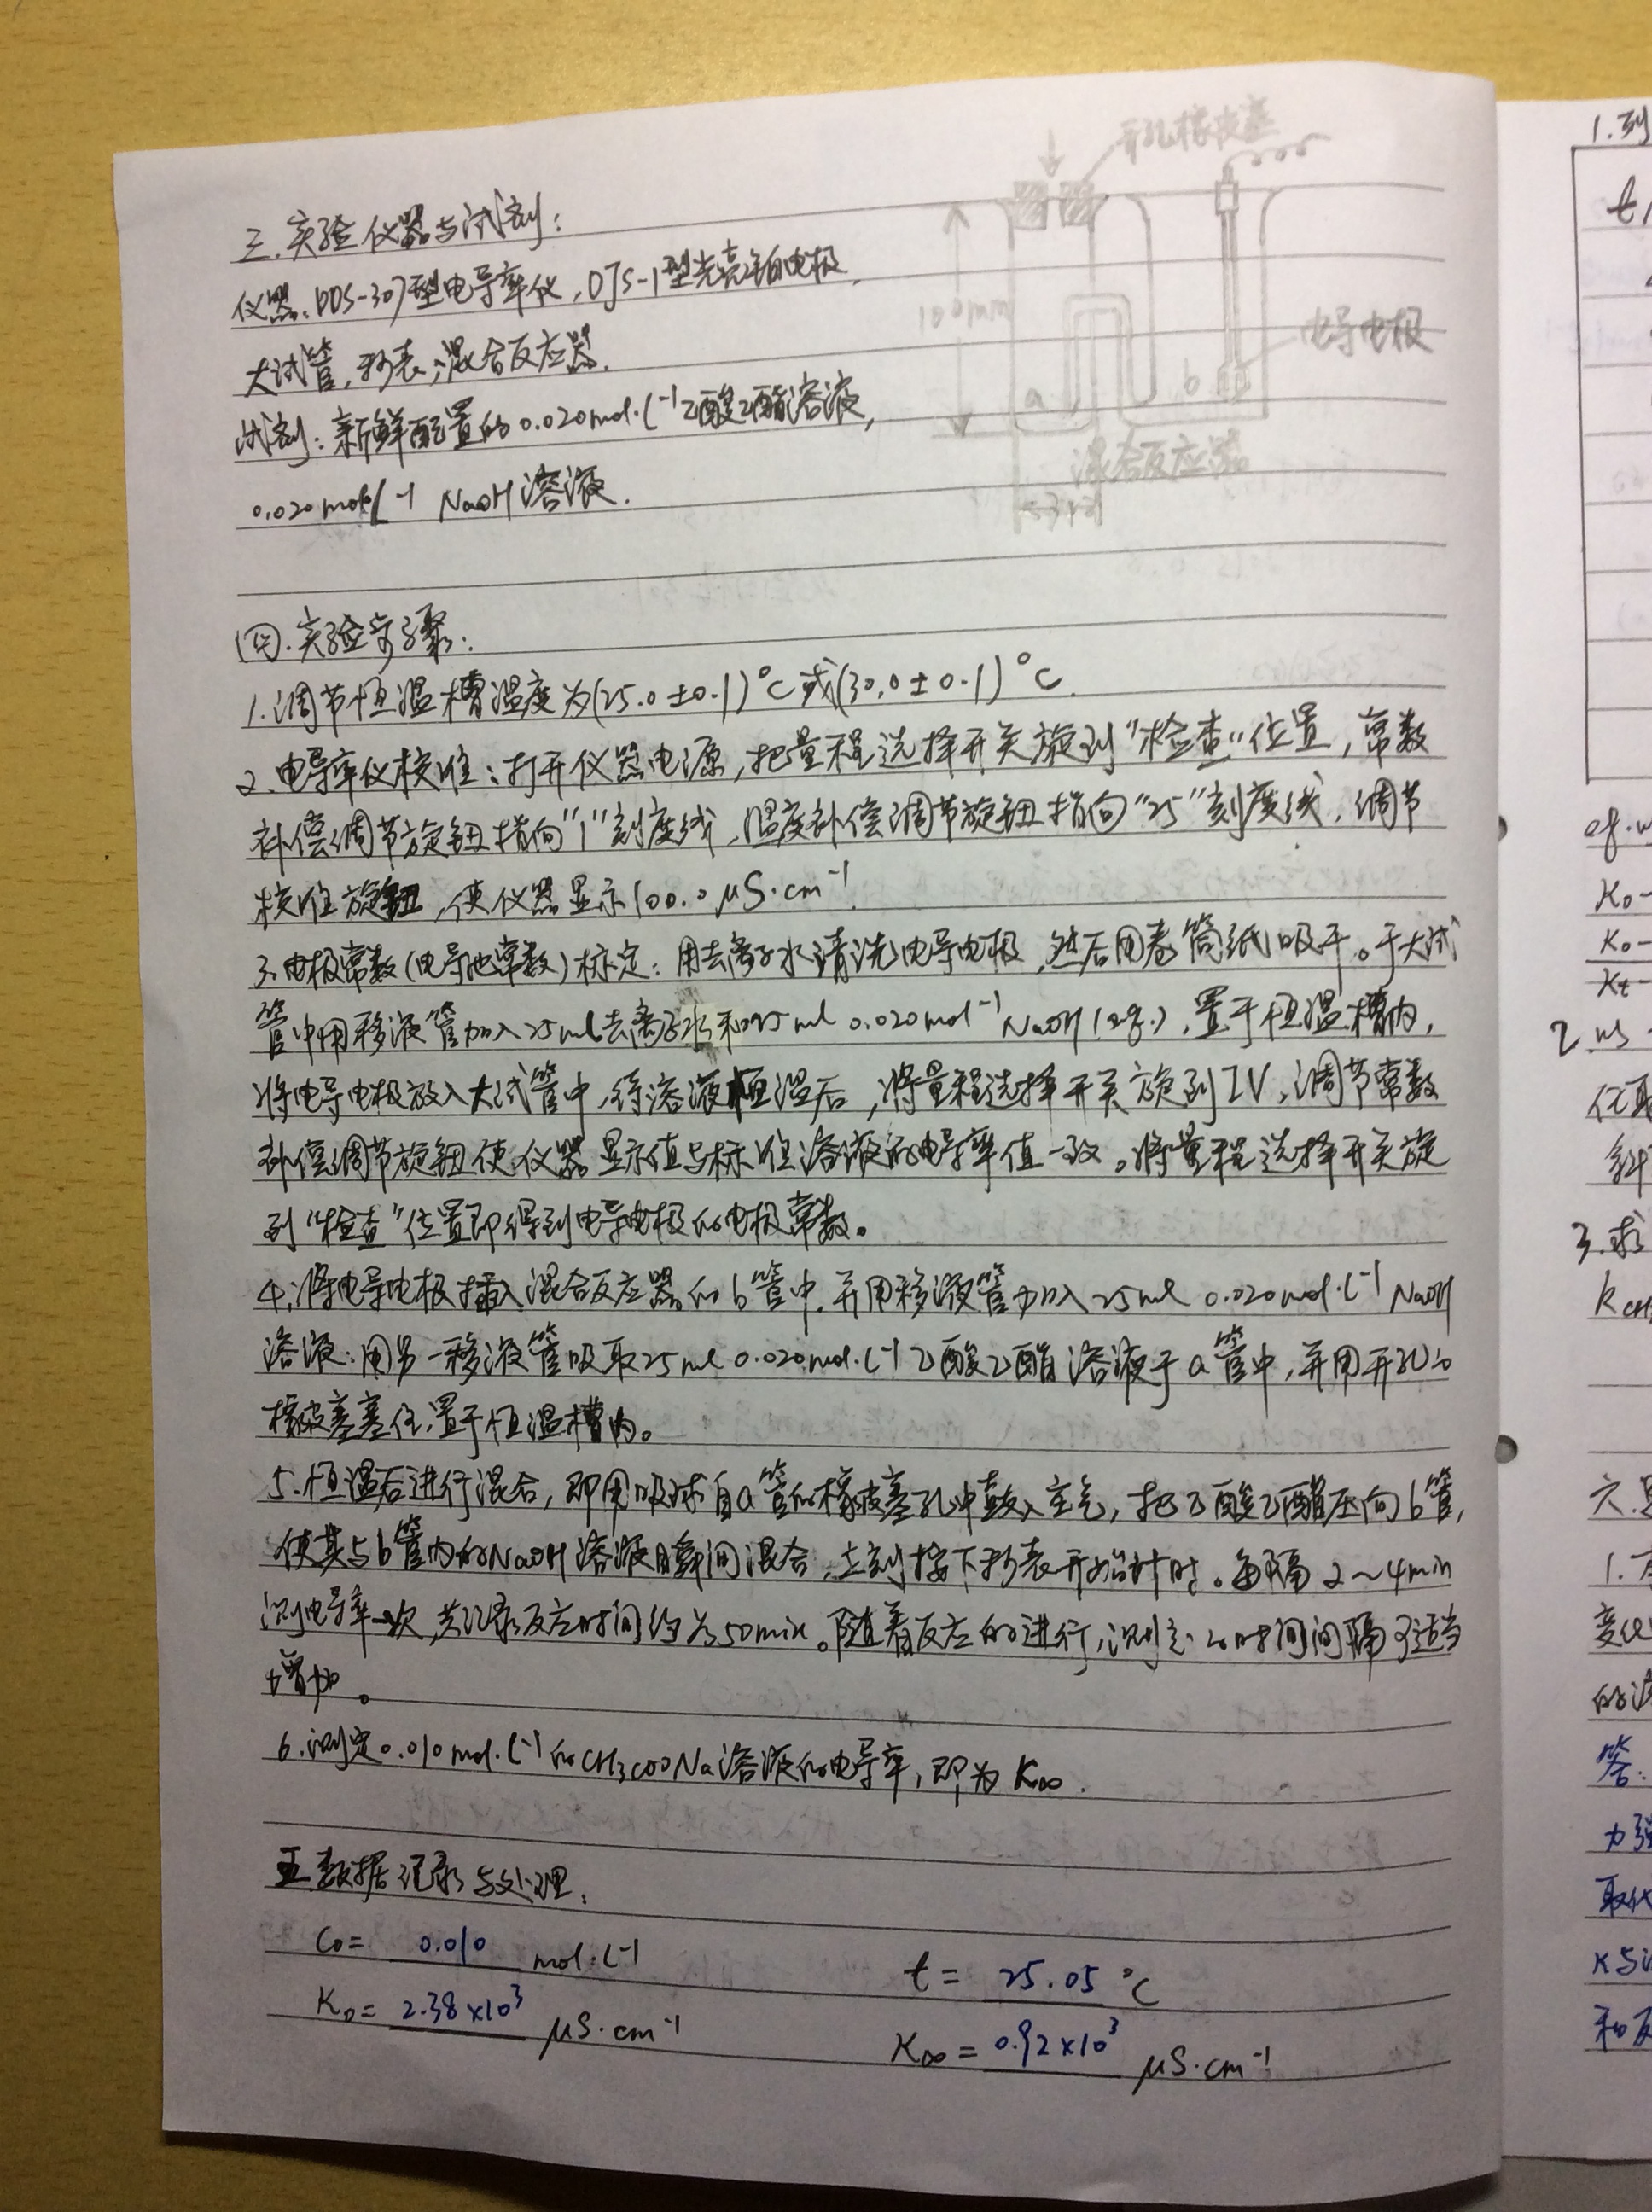 三.实验仪器与试剂:
仪器:DDS-307型电导率仪,DJS-1型光亮铂电极,
大试管,秒表,混合反应器.
试剂:新鲜配置的0.020mol·L⁻¹乙酸乙酯溶液,
0.020mol·L⁻¹ NaOH溶液.
开孔橡皮塞
100mm
电导电极
a
b
混合反应器
四.实验步骤:
1.调节恒温槽温度为(25.0±0.1)°C或(30.0±0.1)°C.
2.电导率仪校准:打开仪器电源,把量程选择开关旋到"检查"位置,常数
补偿调节旋钮指向"1"刻度线,温度补偿调节旋钮指向"25"刻度线,调节
校准旋钮,使仪器显示100.0μS·cm⁻¹.
3.电极常数(电导池常数)标定:用去离子水清洗电导电极,然后用卷筒纸吸干。于大试
管中用移液管加入25ml去离子水和25ml 0.020mol⁻¹ NaOH,置于恒温槽内,
将电导电极放入大试管中,待溶液恒温后,将量程选择开关旋到IV,调节常数
补偿调节旋钮使仪器显示值与标准溶液的电导率值一致。将量程选择开关旋
到"检查"位置即得到电导电极的电极常数。
4.将电导电极插入混合反应器的b管中,并用移液管加入25ml 0.020mol·L⁻¹ NaOH
溶液;用另一移液管吸取25ml 0.020mol·L⁻¹乙酸乙酯溶液于a管中,并用开孔的
橡皮塞塞住,置于恒温槽内。
5.恒温后进行混合,即用吸球自a管的橡皮塞孔中鼓入空气,把乙酸乙酯压向b管,
使其与b管内的NaOH溶液瞬间混合,立刻按下秒表开始计时。每隔2~4min
测电导率一次,共记录反应时间约为50min。随着反应的进行,测定的时间间隔可适当
增加。
6.测定0.010mol·L⁻¹的CH₃COONa溶液的电导率,即为K∞.
五.数据记录与处理:
C₀= 0.010 mol·L⁻¹ t= 25.05 °C
K₀= 2.38×10³ μS·cm⁻¹ K∞= 0.92×10³ μS·cm⁻¹
1.列
t/
K₀-
K₀-
Kt-
3.求
六.
1.
变化
答:
取代